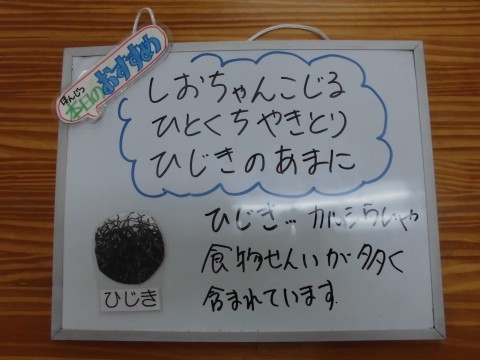 ほんじつ
本日のおすすめ
しおちゃんこじる
ひとくちやきとり
ひじきのあまに
ひじき… カルシウムや
食物せんいが多く
含まれています。
ひじき